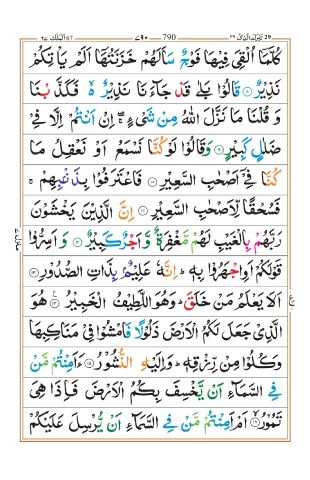 ٦٧ الملك ٢٩ ٧٩٠ 790 تبٰرك الذى ٢٩ 29
كُلَّمَآ اُلْقِىَ فِيْهَا فَوْجٌ سَاَلَهُمْ خَزَنَتُهَآ اَلَمْ يَاْتِكُمْ
نَذِيْرٌ ۝ قَالُوْا بَلٰى قَدْ جَآءَنَا نَذِيْرٌ ۙ فَكَذَّبْنَا
وَ قُلْنَا مَا نَزَّلَ اللّٰهُ مِنْ شَىْءٍ ۚ اِنْ اَنْتُمْ اِلَّا فِىْ
ضَلٰلٍ كَبِيْرٍ ۝ وَقَالُوْا لَوْ كُنَّا نَسْمَعُ اَوْ نَعْقِلُ مَا
كُنَّا فِىْٓ اَصْحٰبِ السَّعِيْرِ ۝ فَاعْتَرَفُوْا بِذَنْۢبِهِمْ ۚ
فَسُحْقًا لِّاَصْحٰبِ السَّعِيْرِ ۝ اِنَّ الَّذِيْنَ يَخْشَوْنَ
رَبَّهُمْ بِالْغَيْبِ لَهُمْ مَّغْفِرَةٌ وَّاَجْرٌ كَبِيْرٌ ۝ وَ اَسِرُّوْا
قَوْلَكُمْ اَوِ اجْهَرُوْا بِهٖ ؕ اِنَّهٗ عَلِيْمٌۢ بِذَاتِ الصُّدُوْرِ ۝۱۳
اَلَا يَعْلَمُ مَنْ خَلَقَ ؕ وَهُوَ اللَّطِيْفُ الْخَبِيْرُ ۝ هُوَ
الَّذِىْ جَعَلَ لَكُمُ الْاَرْضَ ذَلُوْلًا فَامْشُوْا فِىْ مَنَاكِبِهَا
وَكُلُوْا مِنْ رِّزْقِهٖ ؕ وَاِلَيْهِ النُّشُوْرُ ۝۱۵ ءَاَمِنْتُمْ مَّنْ
فِى السَّمَآءِ اَنْ يَّخْسِفَ بِكُمُ الْاَرْضَ فَاِذَا هِىَ
تَمُوْرُ ۝۱۶ اَمْ اَمِنْتُمْ مَّنْ فِى السَّمَآءِ اَنْ يُّرْسِلَ عَلَيْكُمْ